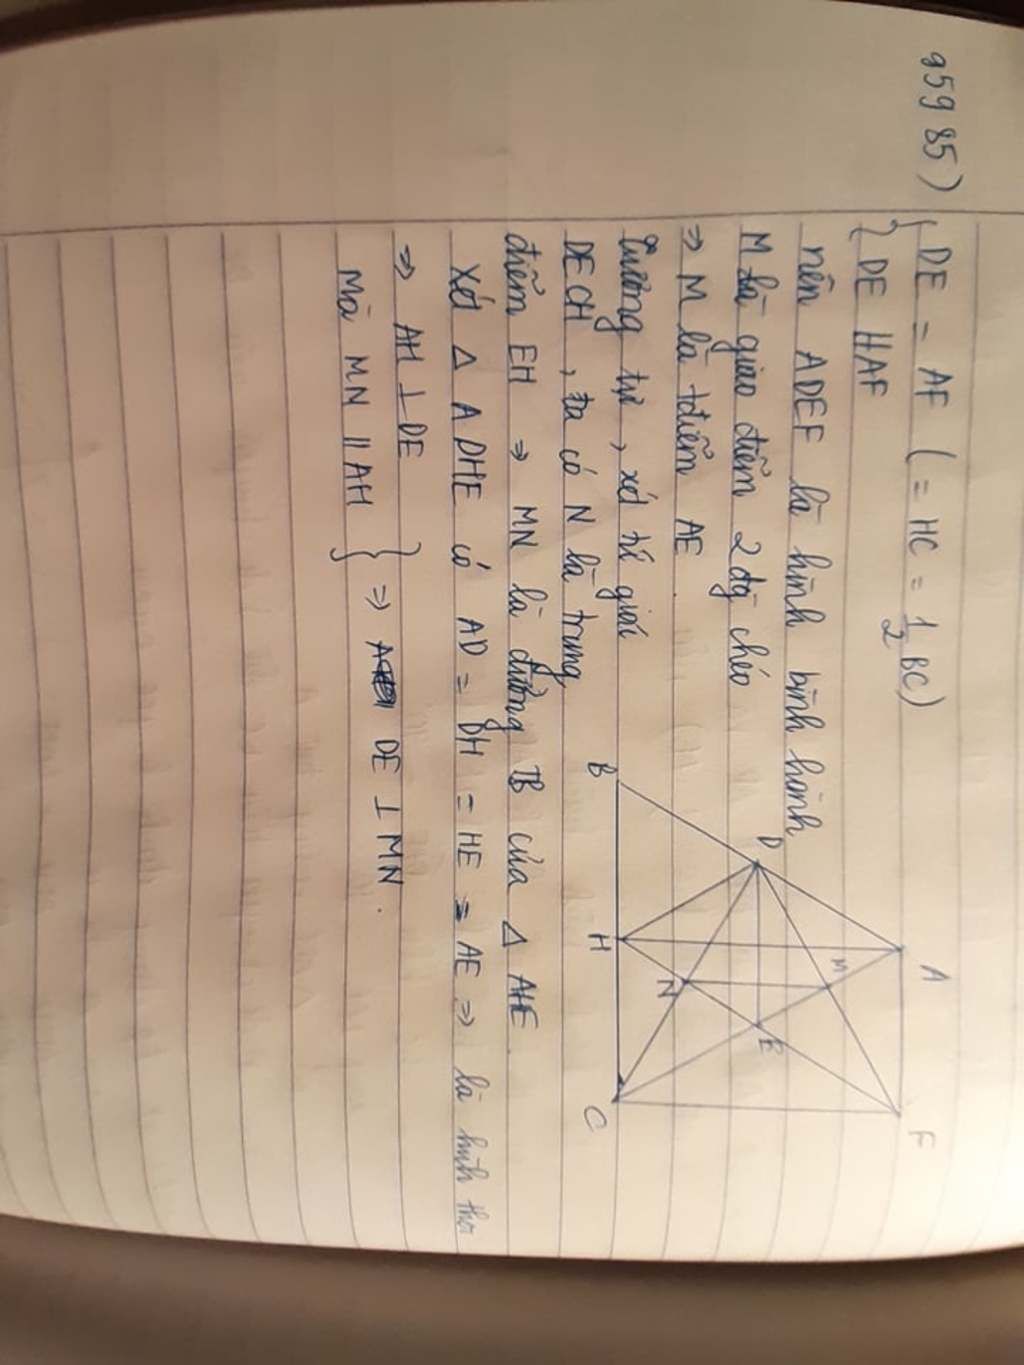 95985) { DE = AF ( = HC = 1/2 BC)
{ DE // AF
nên ADEF là hình bình hành
M là giao điểm 2 đg chéo
⇒ M là tđiểm AE.
Tương tự, xét tứ giác
DECH, ta có N là trung
điểm EH ⇒ MN là đường TB của Δ AHE.
Xét Δ ADHE có AD = DH = HE = AE ⇒ là hình thoi
⇒ AH ⊥ DE
Mà MN // AH } ⇒ DE ⊥ MN.
A
F
D
M
E
N
B
H
C